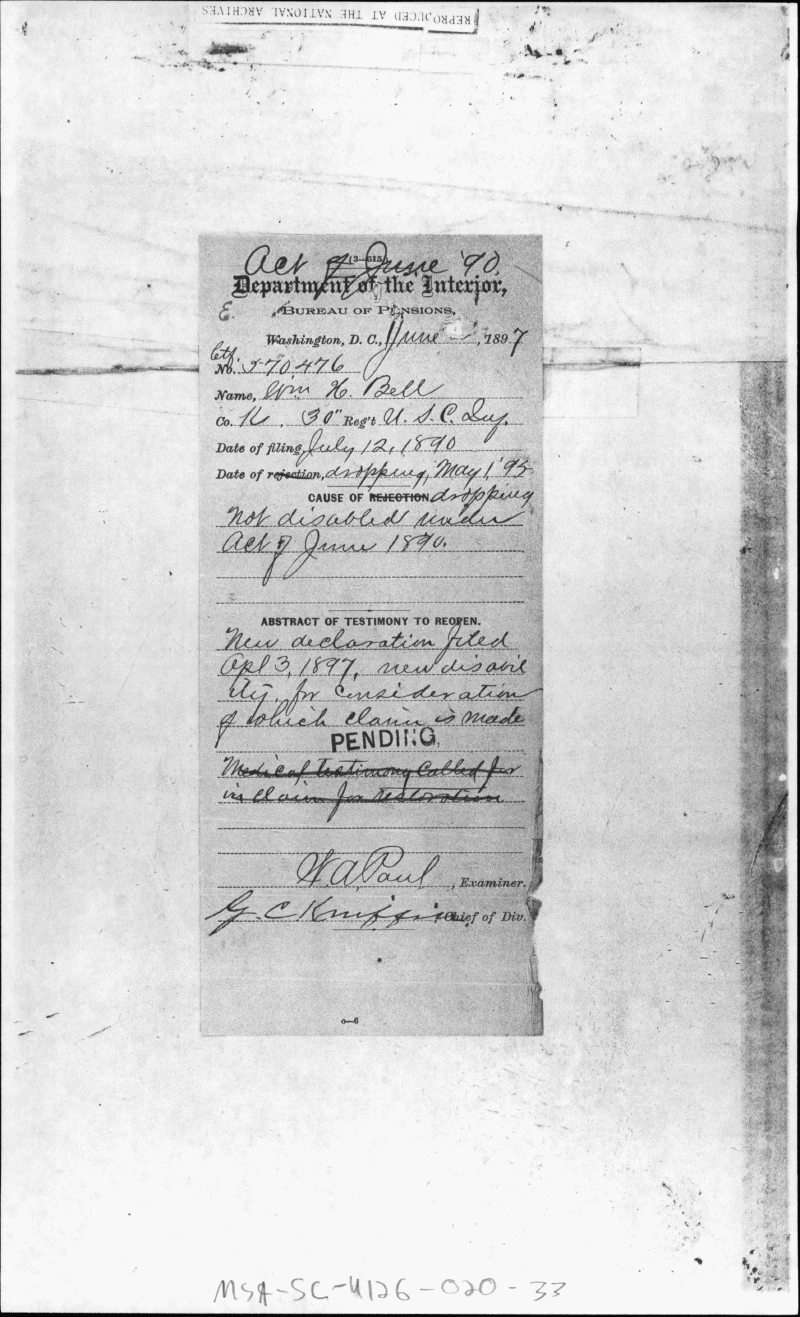 REPRODUCED AT THE NATIONAL ARCHIVES
(3—615)
Act of June '90.
Department of the Interior,
E. BUREAU OF PENSIONS,
Washington, D. C., June , 1897
Ctf.
No. 570476
Name, Wm H. Bell
Co. K. 30" Reg't U. S. C. Inf.
Date of filing, July 12, 1890
Date of rejection, dropping, May 1, '95
CAUSE OF REJECTION dropping
Not disabled under
Act of June 1890.
ABSTRACT OF TESTIMONY TO REOPEN.
New declaration filed
Apl 3, 1897, new disabil
ity, for consideration
of which claim is made
PENDING,
Medical testimony called for
in claim for restoration
W. A. Paul, Examiner.
G. C. Kniffin, Chief of Div.
6—6
MSA-SC-4126-020-33